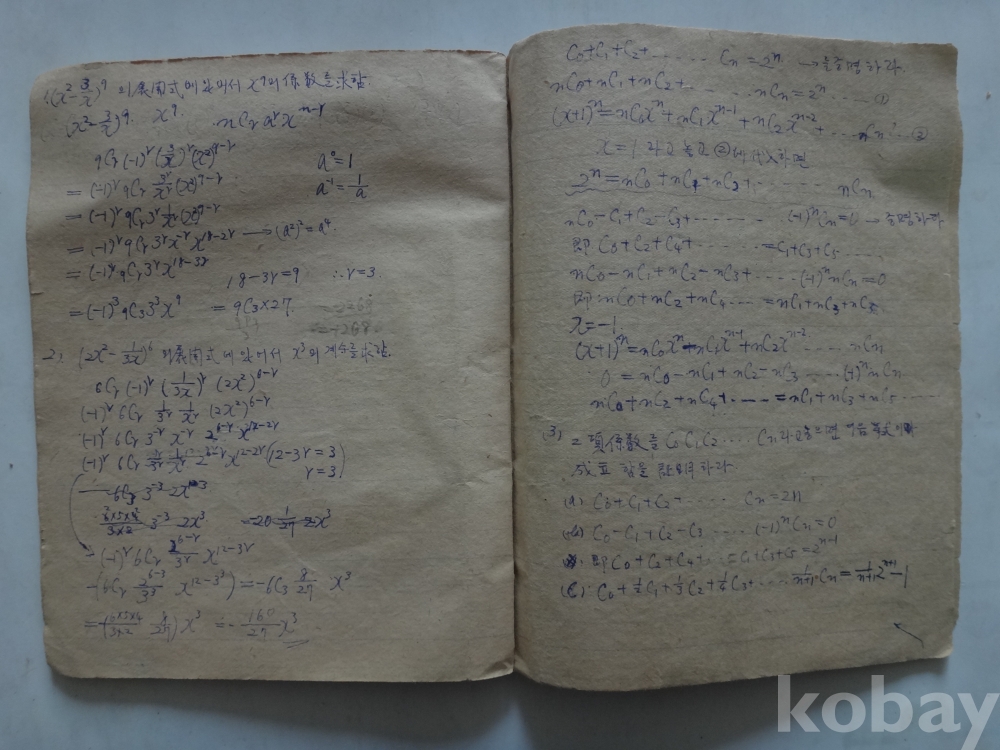 (x²-3/x)⁹ 의 展開式에 있어서 x⁹의 係數를 求함.
(x²-3/x)⁹. x⁹. nCr aʳxⁿ⁻ʳ
9Cr(-1)ʳ(3/x)ʳ(x²)⁹⁻ʳ a⁰=1
=(-1)ʳ 9Cr 3ʳ/xʳ (x²)⁹⁻ʳ a⁻¹=1/a
=(-1)ʳ 9Cr 3ʳ 1/xʳ (x²)⁹⁻ʳ
=(-1)ʳ 9Cr 3ʳx⁻ʳx¹⁸⁻²ʳ → (a²)²=a⁴.
=(-1)ʳ 9Cr 3ʳx¹⁸⁻³ʳ
18-3r=9 ∴r=3.
=(-1)³ 9C3 3³x⁹ =9C3×27.
2) (2x²-1/3x)⁶ 의 展開式에 있어서 x³의 계수를 求함.
6Cr(-1)ʳ(1/3x)ʳ(2x²)⁶⁻ʳ
(-1)ʳ 6Cr 1/3ʳ 1/xʳ (2x²)⁶⁻ʳ
(-1)ʳ 6Cr 3⁻ʳ x⁻ʳ 2⁶⁻ʳ x¹²⁻²ʳ
(-1)ʳ 6Cr x¹²⁻²ʳ (12-3r=3
r=3)
-6C3 3⁻³ 2x³
3⁻³ 2x³ =-20 1/27 2x³
(-1)ʳ 6Cr 2⁶⁻ʳ/3ʳ x¹²⁻³ʳ
-(6Cr 2⁶⁻³/3³ x¹²⁻³·³)=-6C3 8/27 x³
=-(6×5×4/3×2 8/27)x³ =-160/27 x³
C0+C1+C2+...... Cn=2ⁿ → 를 증명하라.
nC0+nC1+nC2+...... nCn=2ⁿ ..... ①
(x+1)ⁿ=nC0xⁿ+nC1xⁿ⁻¹+nC2xⁿ⁻²+...nCn...②
x=1 라고 놓고 ②에 代入하면
2ⁿ=nC0+nC1+nC2+...... nCn
nC0-C1+C2-C3+...... (-1)ⁿCn=0 → 증명하라
即 C0+C2+C4+...... =C1+C3+C5.....
nC0-nC1+nC2-nC3+.....(-1)ⁿnCn=0
即: nC0+nC2+nC4.... =nC1+nC3+nC5
x=-1
(x+1)ⁿ=nC0xⁿ+nC1xⁿ⁻¹+nC2xⁿ⁻²..... nCn
0=nC0-nC1+nC2-nC3.....(-1)ⁿnCn
nC0+nC2+nC4+.....=nC1+nC3+nC5.....
(3) 二項係數를 C0 C1 C2 .... Cn 라고 놓으면 다음
成立 함을 하라
(a) C0+C1+C2+..... Cn=2n
(b) C0-C1+C2-C3.....(-1)ⁿCn=0
即 C0+C2+C4+...=C1+C3+C5=2ⁿ⁻¹
(C): C0+1/2C1+1/3C2+1/4C3+....1/n+1·Cn=1/n+1 2ⁿ⁺¹-1
kobay